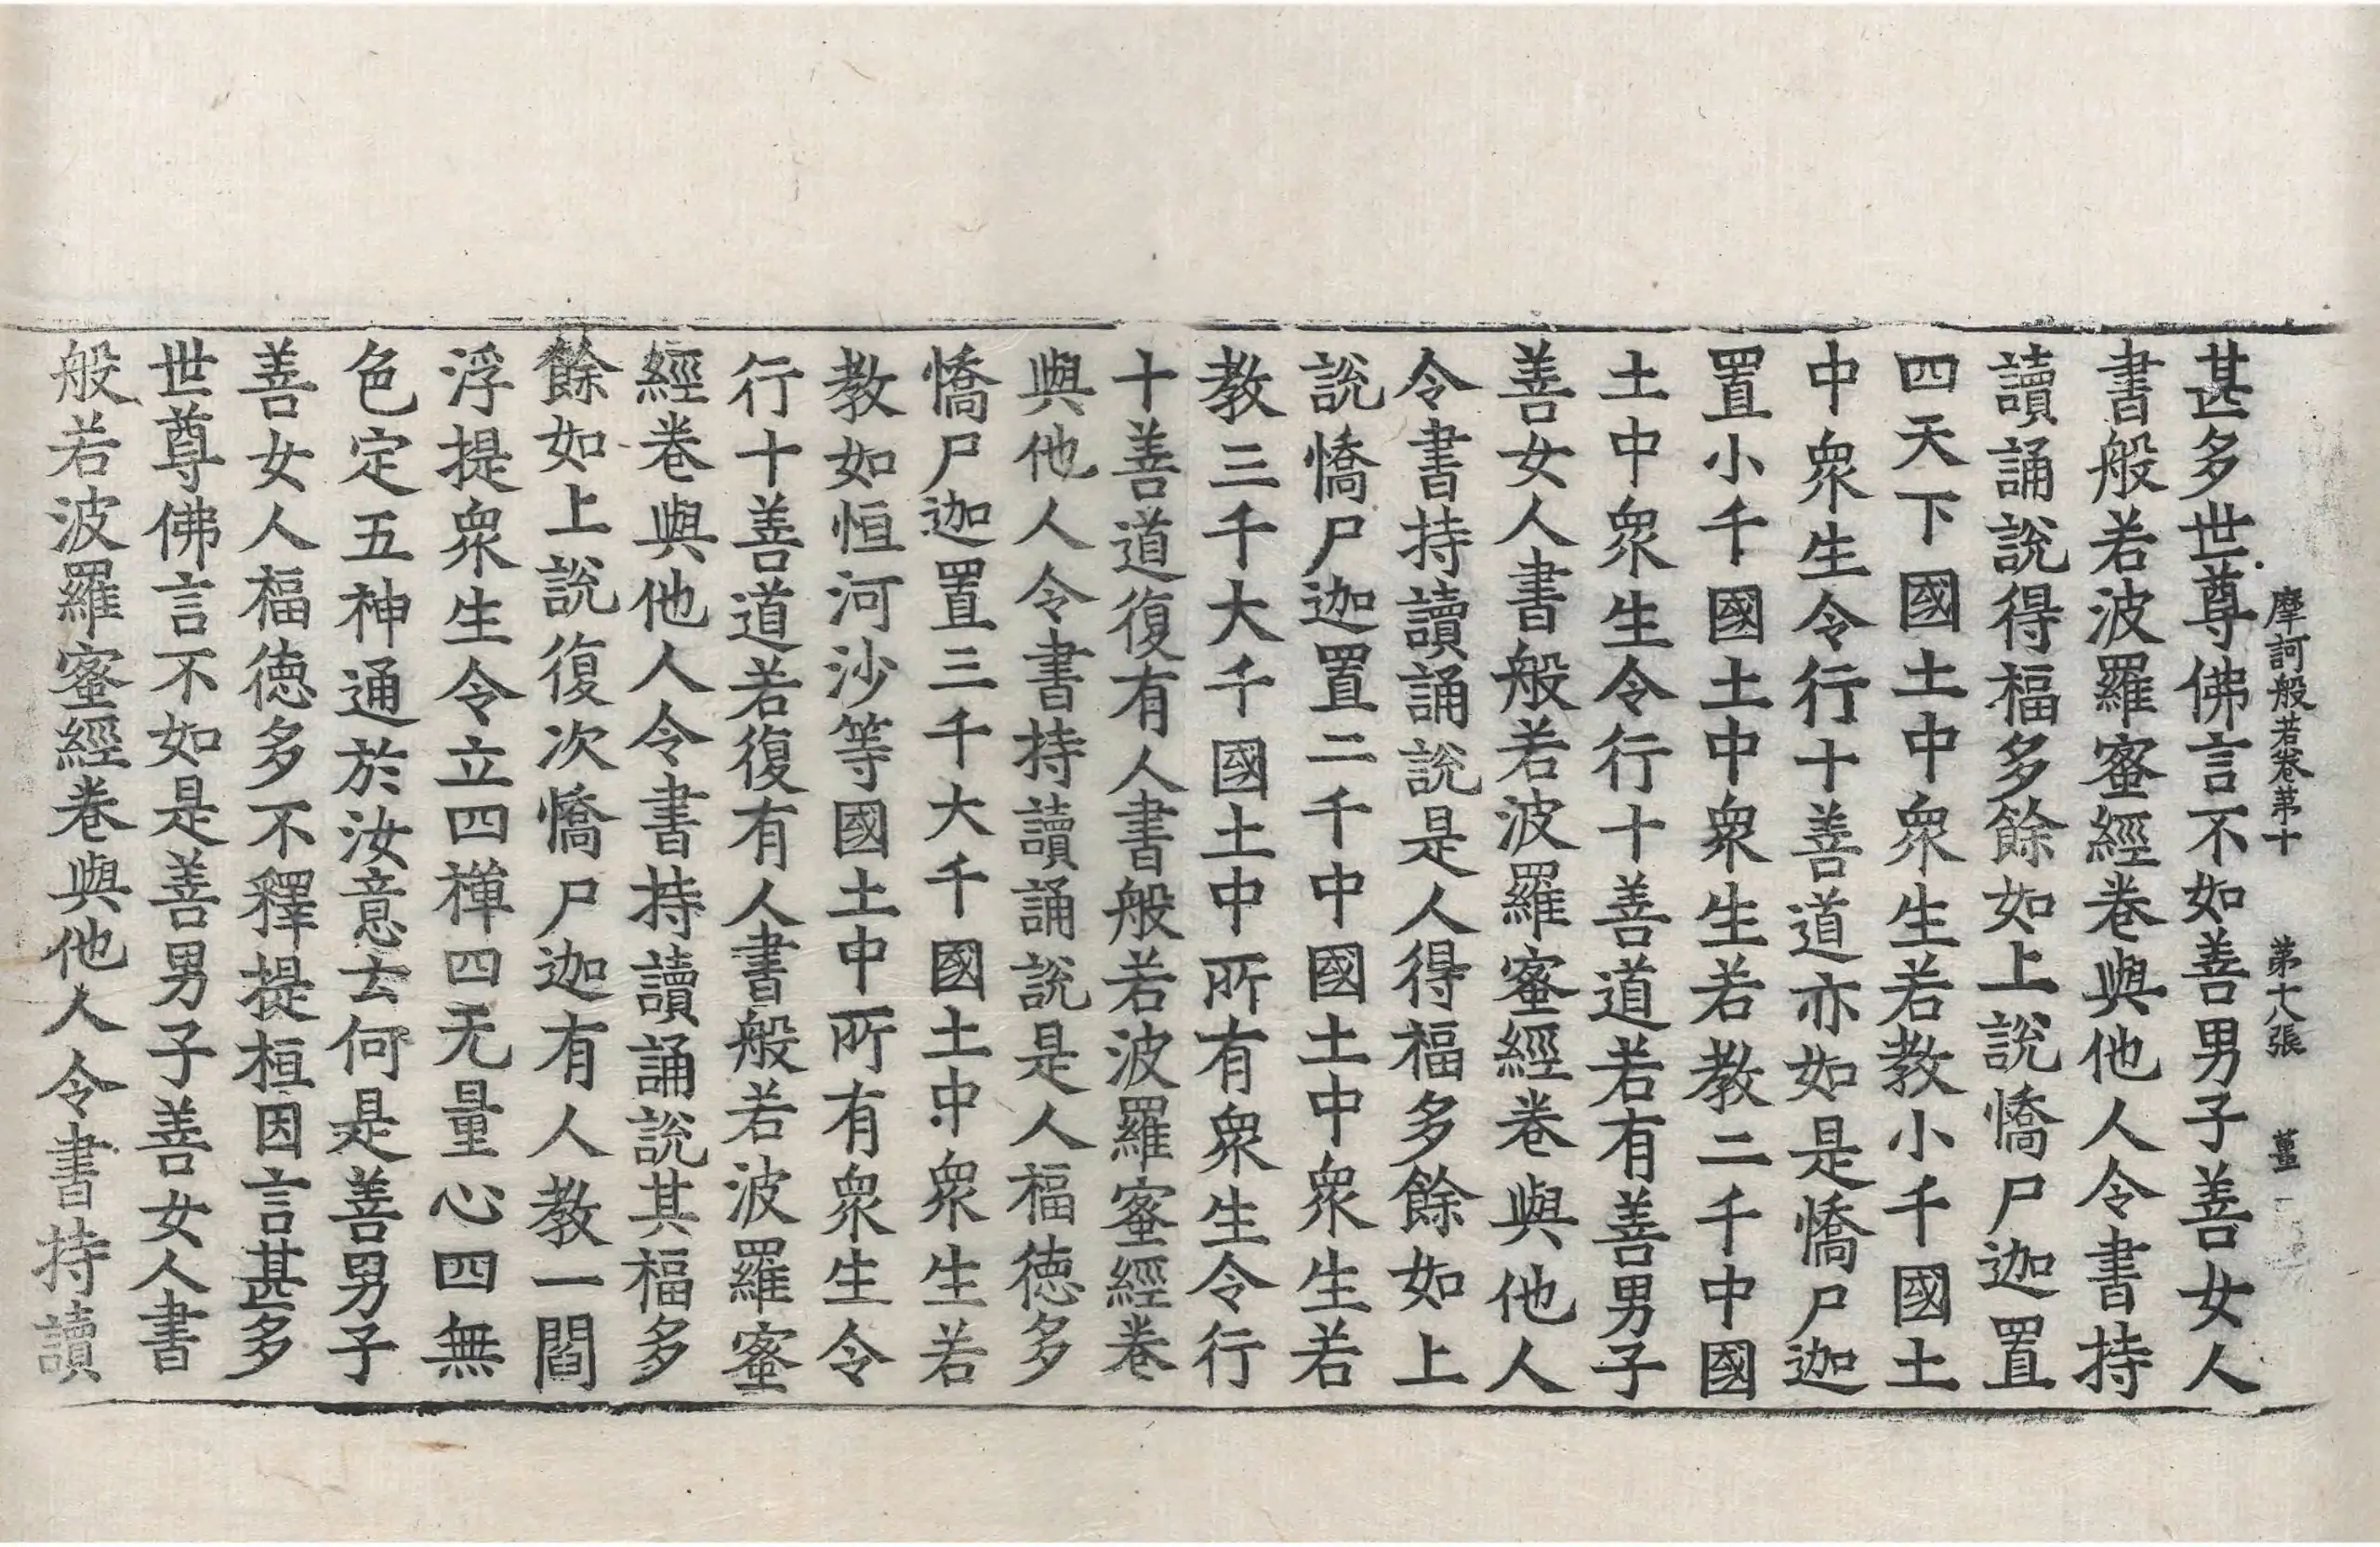 摩訶般若卷第十　第十八張　薑
甚多世尊佛言不如善男子善女人
書般若波羅蜜經卷與他人令書持
讀誦說得福多餘如上說憍尸迦置
四天下國土中衆生若教小千國土
中衆生令行十善道亦如是憍尸迦
置小千國土中衆生若教二千中國
土中衆生令行十善道若有善男子
善女人書般若波羅蜜經卷與他人
令書持讀誦說是人得福多餘如上
說憍尸迦置二千中國土中衆生若
教三千大千國土中所有衆生令行
十善道復有人書般若波羅蜜經卷
與他人令書持讀誦說是人福德多
憍尸迦置三千大千國土中衆生若
教如恒河沙等國土中所有衆生令
行十善道若復有人書般若波羅蜜
經卷與他人令書持讀誦說其福多
餘如上說復次憍尸迦有人教一閻
浮提衆生令立四禪四无量心四無
色定五神通於汝意云何是善男子
善女人福德多不釋提桓因言甚多
世尊佛言不如是善男子善女人書
般若波羅蜜經卷與他人令書持讀